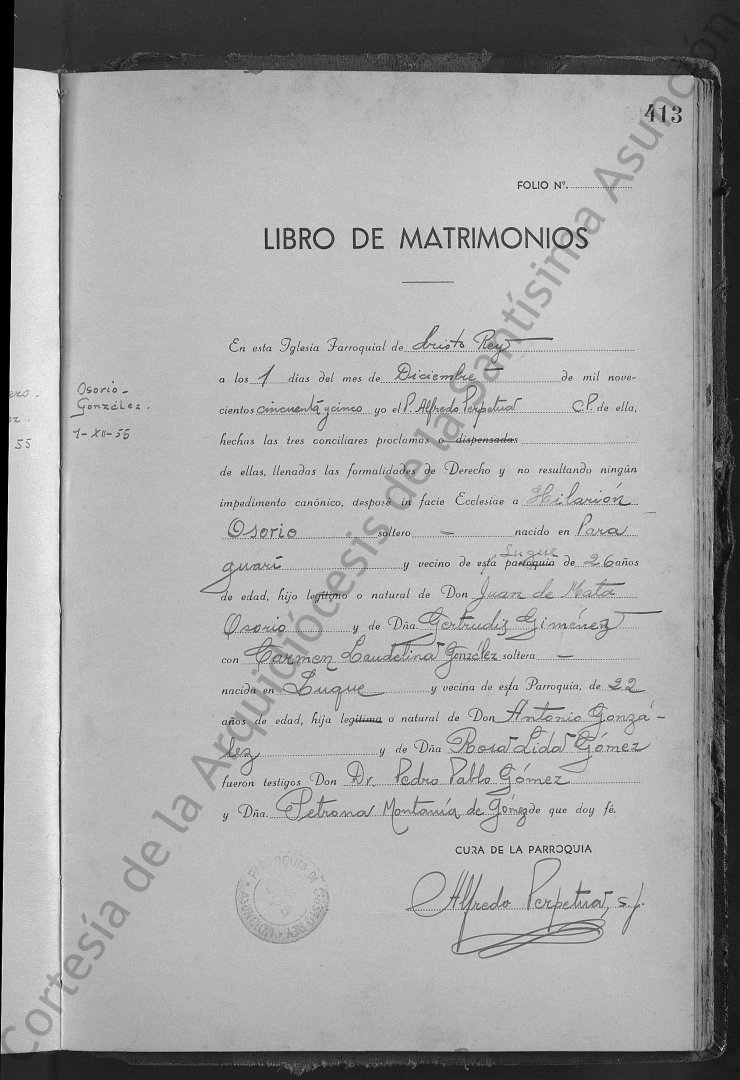 413
FOLIO Nº.
LIBRO DE MATRIMONIOS
En esta Iglesia Parroquial de Cristo Rey
a los 1 días del mes de Diciembre de mil nove-
cientos cincuenta y cinco yo el P. Alfredo Perpetua C.P. de ella,
hechas las tres conciliares proclamas o dispensadas
de ellas, llenadas las formalidades de Derecho y no resultando ningún
impedimento canónico, desposé in facie Ecclesiae a Hilarión
Osorio soltero - nacido en Para
Luque
guarí y vecino de esta parroquia de 26 años
de edad, hijo legítimo o natural de Don Juan de Mata
Osorio y de Dña. Gertrudis Giménez
con Carmen Laudelina González soltera -
nacida en Luque y vecina de esta Parroquia, de 22
años de edad, hija legítima o natural de Don Antonio Gonzá-
lez y de Dña Rosa Lida Gómez
fueron testigos Don Dr. Pedro Pablo Gómez
y Dña. Petrona Montanía de Gómez de que doy fé.
CURA DE LA PARROQUIA
Alfredo Perpetua, s.j.
Osorio-
González.
1-XII-55
55
PARROQUIA DE CRISTO REY
ASUNCION
Cortesía de la Arquidiócesis de la Santísima Asunción